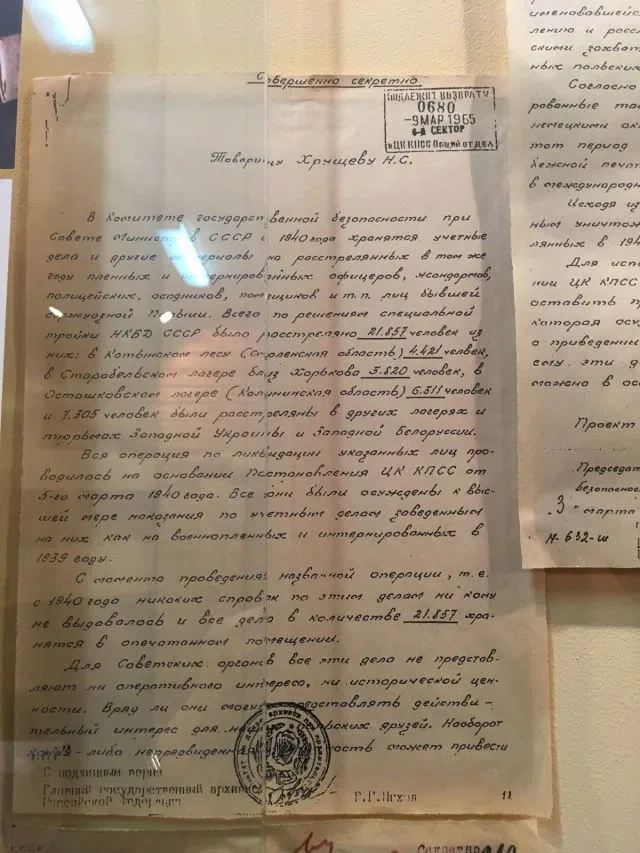 Совершенно секретно
ПОДЛЕЖИТ ВОЗВРАТУ
0680
-9 МАР 1965
6-й СЕКТОР
в ЦК КПСС Общий отдел
Товарищу Хрущеву Н.С.
В Комитете государственной безопасности при
Совете Министров СССР с 1940 года хранятся учетные
дела и другие материалы на расстрелянных в том же
году пленных и интернированных офицеров, жандармов,
полицейских, осадников, помещиков и т.п. лиц бывшей
буржуазной Польши. Всего по решениям специальной
тройки НКВД СССР было расстреляно 21.857 человек из
них: в Катынском лесу (Смоленская область) 4.421 человек,
в Старобельском лагере близ Харькова 3.820 человек, в
Осташковском лагере (Калининская область) 6.311 человек
и 7.305 человек были расстреляны в других лагерях и
тюрьмах Западной Украины и Западной Белоруссии.
Вся операция по ликвидации указанных лиц про-
водилась на основании Постановления ЦК КПСС от
5-го марта 1940 года. Все они были осуждены к выс-
шей мере наказания по учетным делам заведенным
на них как на военнопленных и интернированных в
1939 году.
С момента проведения названной операции, т.е.
с 1940 года никаких справок по этим делам ни кому
не выдавалось и все дела в количестве 21.857 хра-
нятся в опечатанном помещении.
Для Советских органов все эти дела не представ-
ляют ни оперативного интереса, ни исторической цен-
ности. Вряд ли они могут представлять действи-
тельный интерес для наших польских друзей. Наоборот
-либо непредвиденная может привести
С подлинным верно
Главный государственный архивист
Российской Федерации
11
именовавшейс
лению и рассл
скими захват
ных польских
Согласно
рованные то
немецкими ок
тот период
бежной печат
в международн
Исходя из
ным уничтож
лянных в 194
Для испо
нии ЦК КПСС
оставить п
которая осу
о приведении
ему эти д
можно в ос
Проект
Председат
безопаснос
"3" марта
Н-632-ш
Секретно